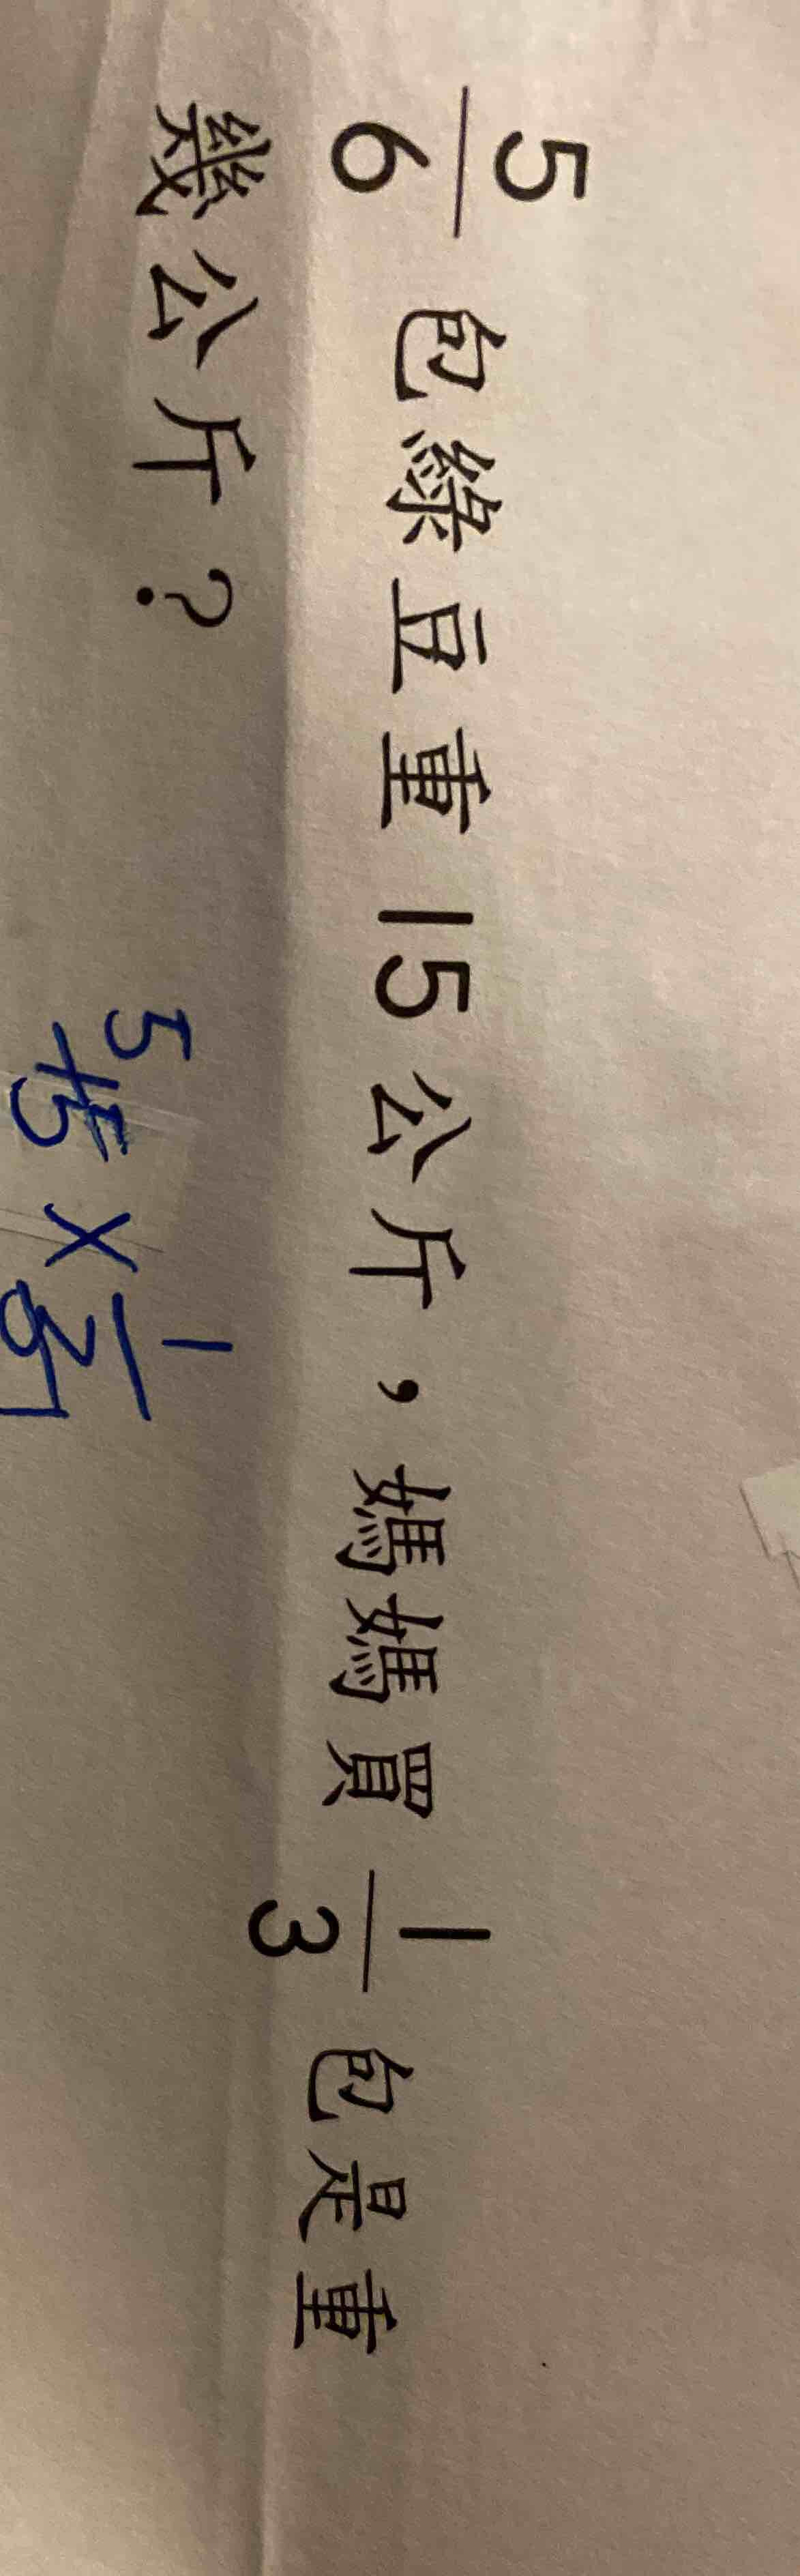 5/6 包綠豆重15公斤，媽媽買 1/3 包是重
幾公斤？
5
15 × 1/3
1